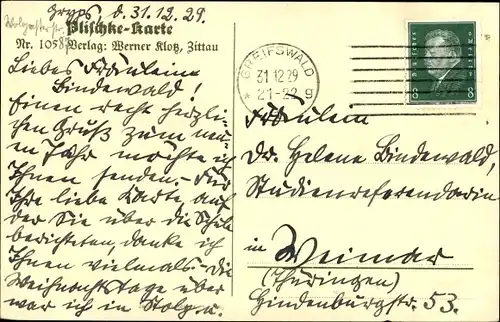 Gryps, d. 31.12.29.
Plischke-Karte
Nr. 1058 Verlag: Werner Klotz, Zittau
Liebes Fräulein
Bindewald!
Einen recht herzli-
chen Gruß zum neu-
en Jahr möchte ich
Ihnen senden. - Für
Ihre liebe Karte, auf
der Sie über die Schule
berichteten, danke ich
Ihnen vielmals. - Die
Weihnachtstage über
war ich in Stolp u.
GREIFSWALD
31.12.29
21-22 g
DEUTSCHES REICH
8 8
Fräulein
Dr. Helene Bindewald,
Studienreferendarin
in Weimar
(Thüringen)
Hindenburgstr. 53.